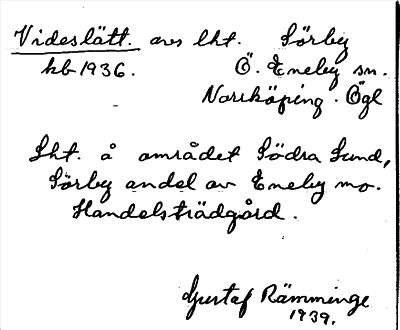 Videslätt. avs lht. Sörby
kb 1936. Ö. Eneby sn.
Norrköping. Ögl
Lht. å området Södra Sund,
Sörby andel av Eneby mo.
Handelsträdgård.
Gustaf Rämminge
1939.